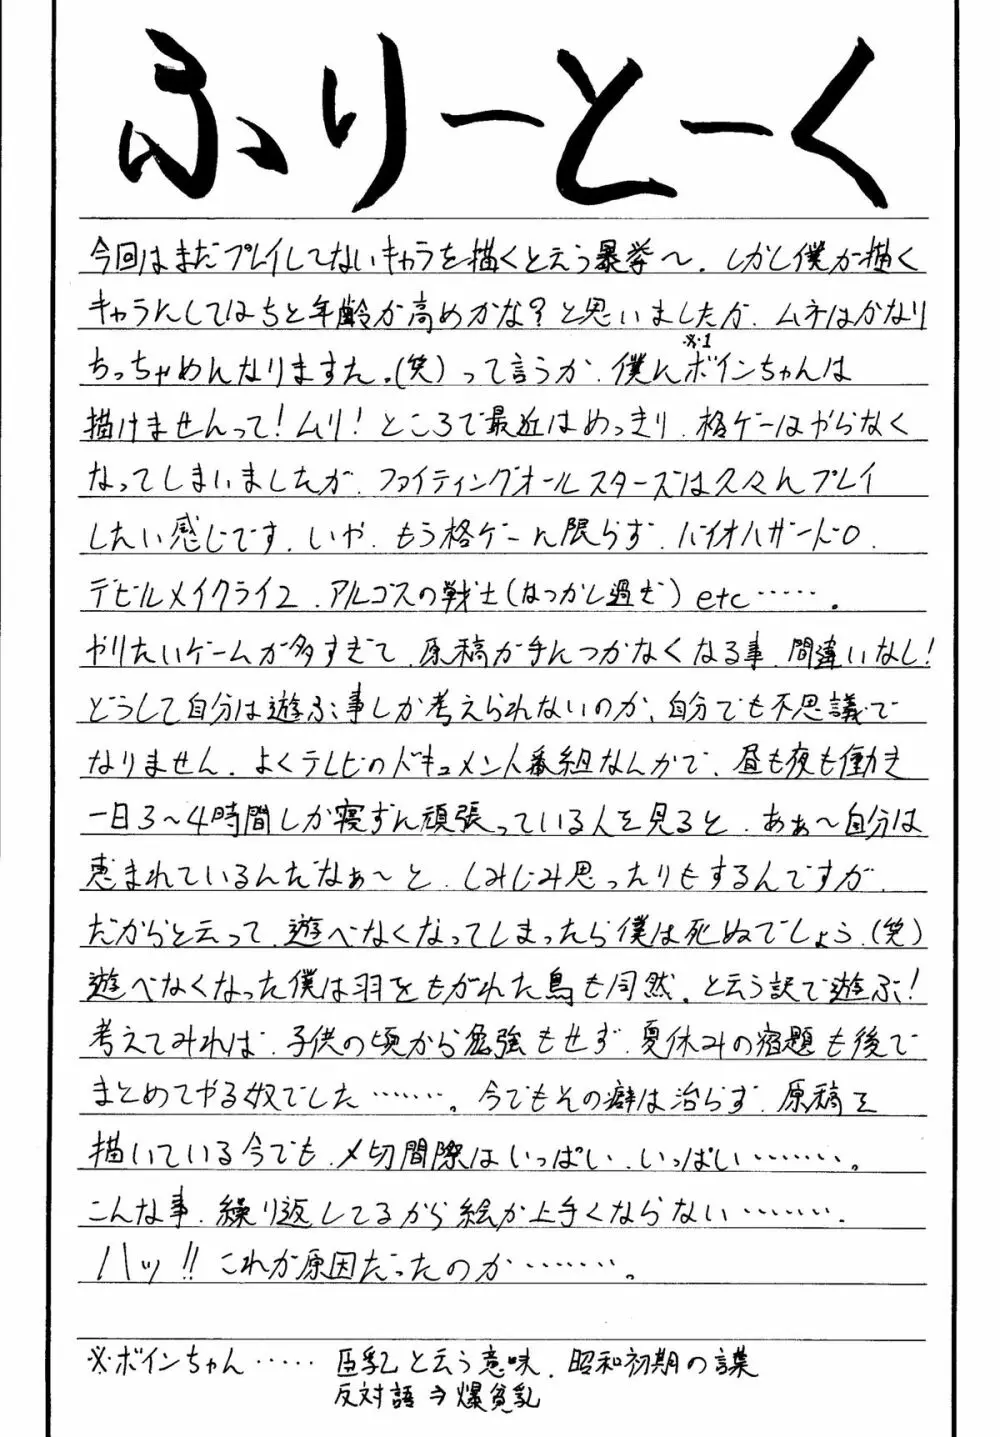 ふりーとーく
今回はまだプレイしてないキャラを描くと云う暴挙〜．しかし僕が描く
キャラにしてはちと年齢が高めかな？と思いましたが、ムネはかなり
ちっちゃめになりますた。（笑）って言うか、僕に※1ボインちゃんは
描けませんって！ムリ！ところで最近はめっきり、格ゲーはやらなく
なってしまいましたが、ファイティングオールスターズは久々にプレイ
したい感じです．いや、もう格ゲーに限らず、バイオハザード0、
デビルメイクライ2、アルゴスの戦士（なつかし過ぎ）etc……。
やりたいゲームが多すぎて、原稿が手につかなくなる事、間違いなし！
どうして自分は遊ぶ事しか考えられないのか、自分でも不思議で
なりません．よくテレビのドキュメント番組なんかで、昼も夜も働き
一日3〜4時間しか寝ずに頑張っている人を見ると、あぁ〜自分は
恵まれているんだなぁ〜と、しみじみ思ったりもするんですが、
だからと云って、遊べなくなってしまったら僕は死ぬでしょう．（笑）
遊べなくなった僕は羽をもがれた鳥も同然。と云う訳で遊ぶ！
考えてみれば、子供の頃から勉強もせず、夏休みの宿題も後で
まとめてやる奴でした………。今でもその癖は治らず、原稿を
描いている今でも、〆切間際はいっぱい、いっぱい………。
こんな事、繰り返してるから絵が上手くならない………．
ハッ!!これが原因だったのか………。
※・ボインちゃん…… 巨乳と云う意味．昭和初期の言葉
反対語⇒爆貧乳